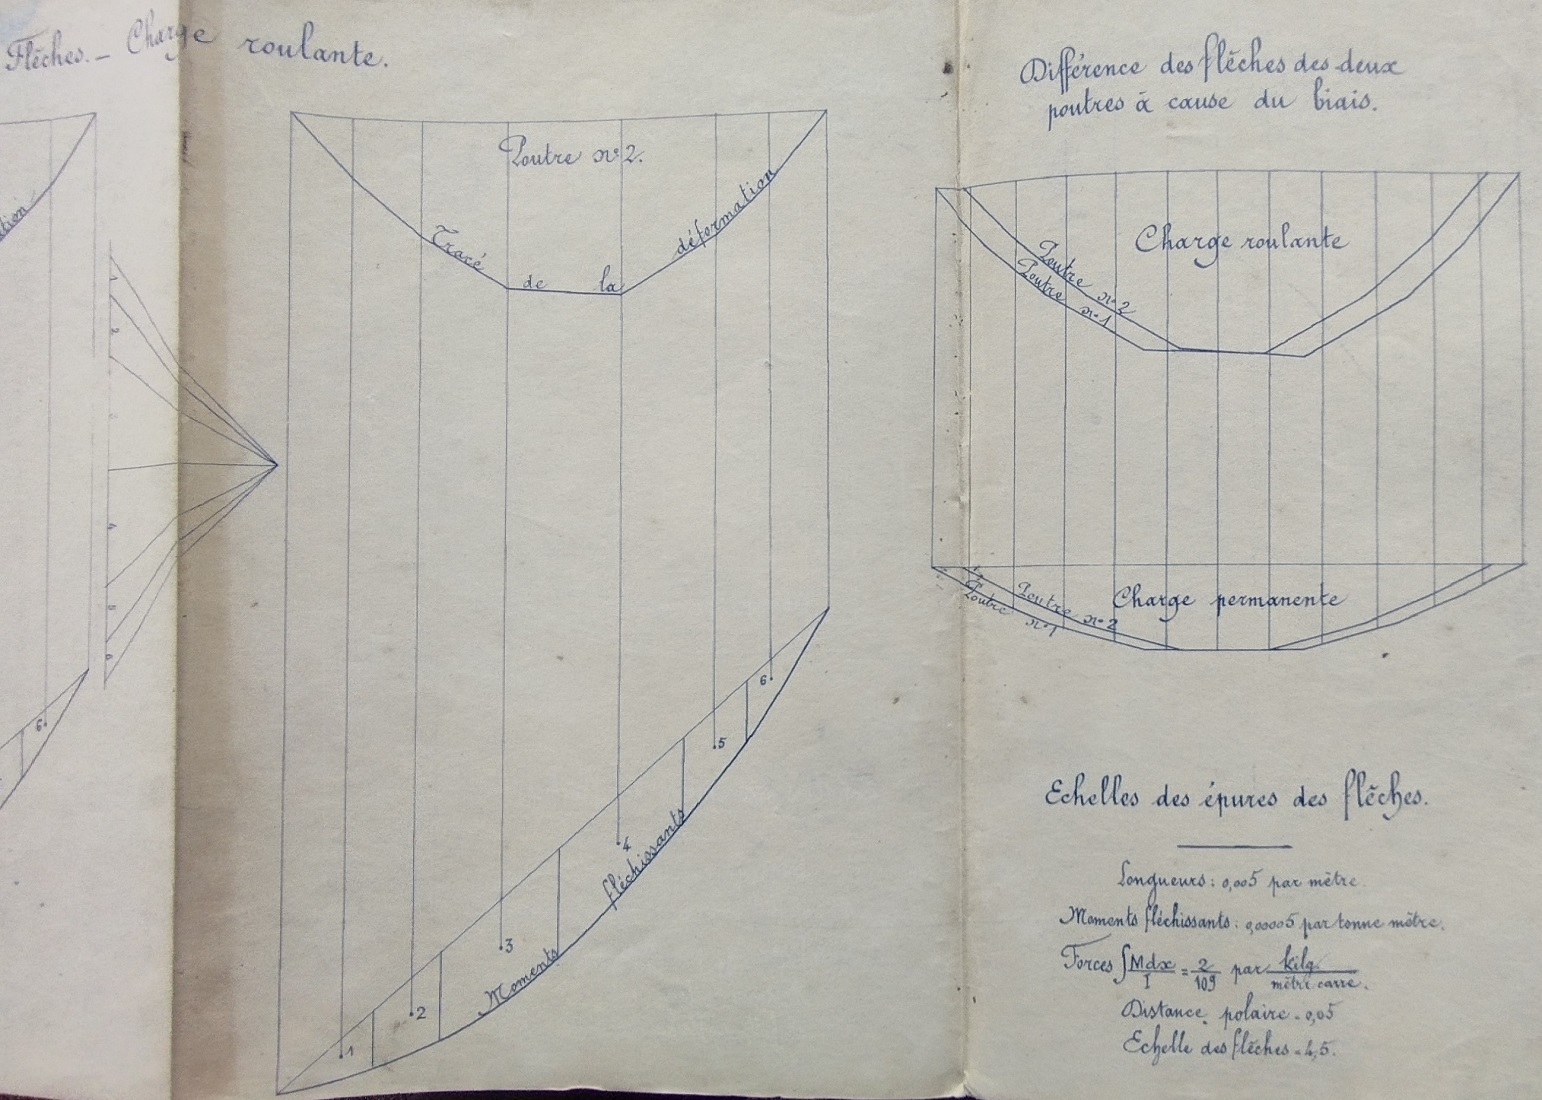 Flèches. - Charge roulante.
Poutre nº 2.
Tracé de la déformation
tion
1
2
4
5
6
6
1
2
3
4
5
6
Moments fléchissants
Différence des flèches des deux
poutres à cause du biais.
Charge roulante
Poutre nº 2
Poutre nº 1
Charge permanente
Poutre nº 2
Poutre nº 1
Echelles des épures des flèches.
Longueurs : 0,005 par mètre.
Moments fléchissants : 0,00005 par tonne mètre.
Forces ∫ Mdx/I = 2/10⁹ par kilg./mètre carré.
Distance polaire = 0,05
Echelle des flèches = 4,5.